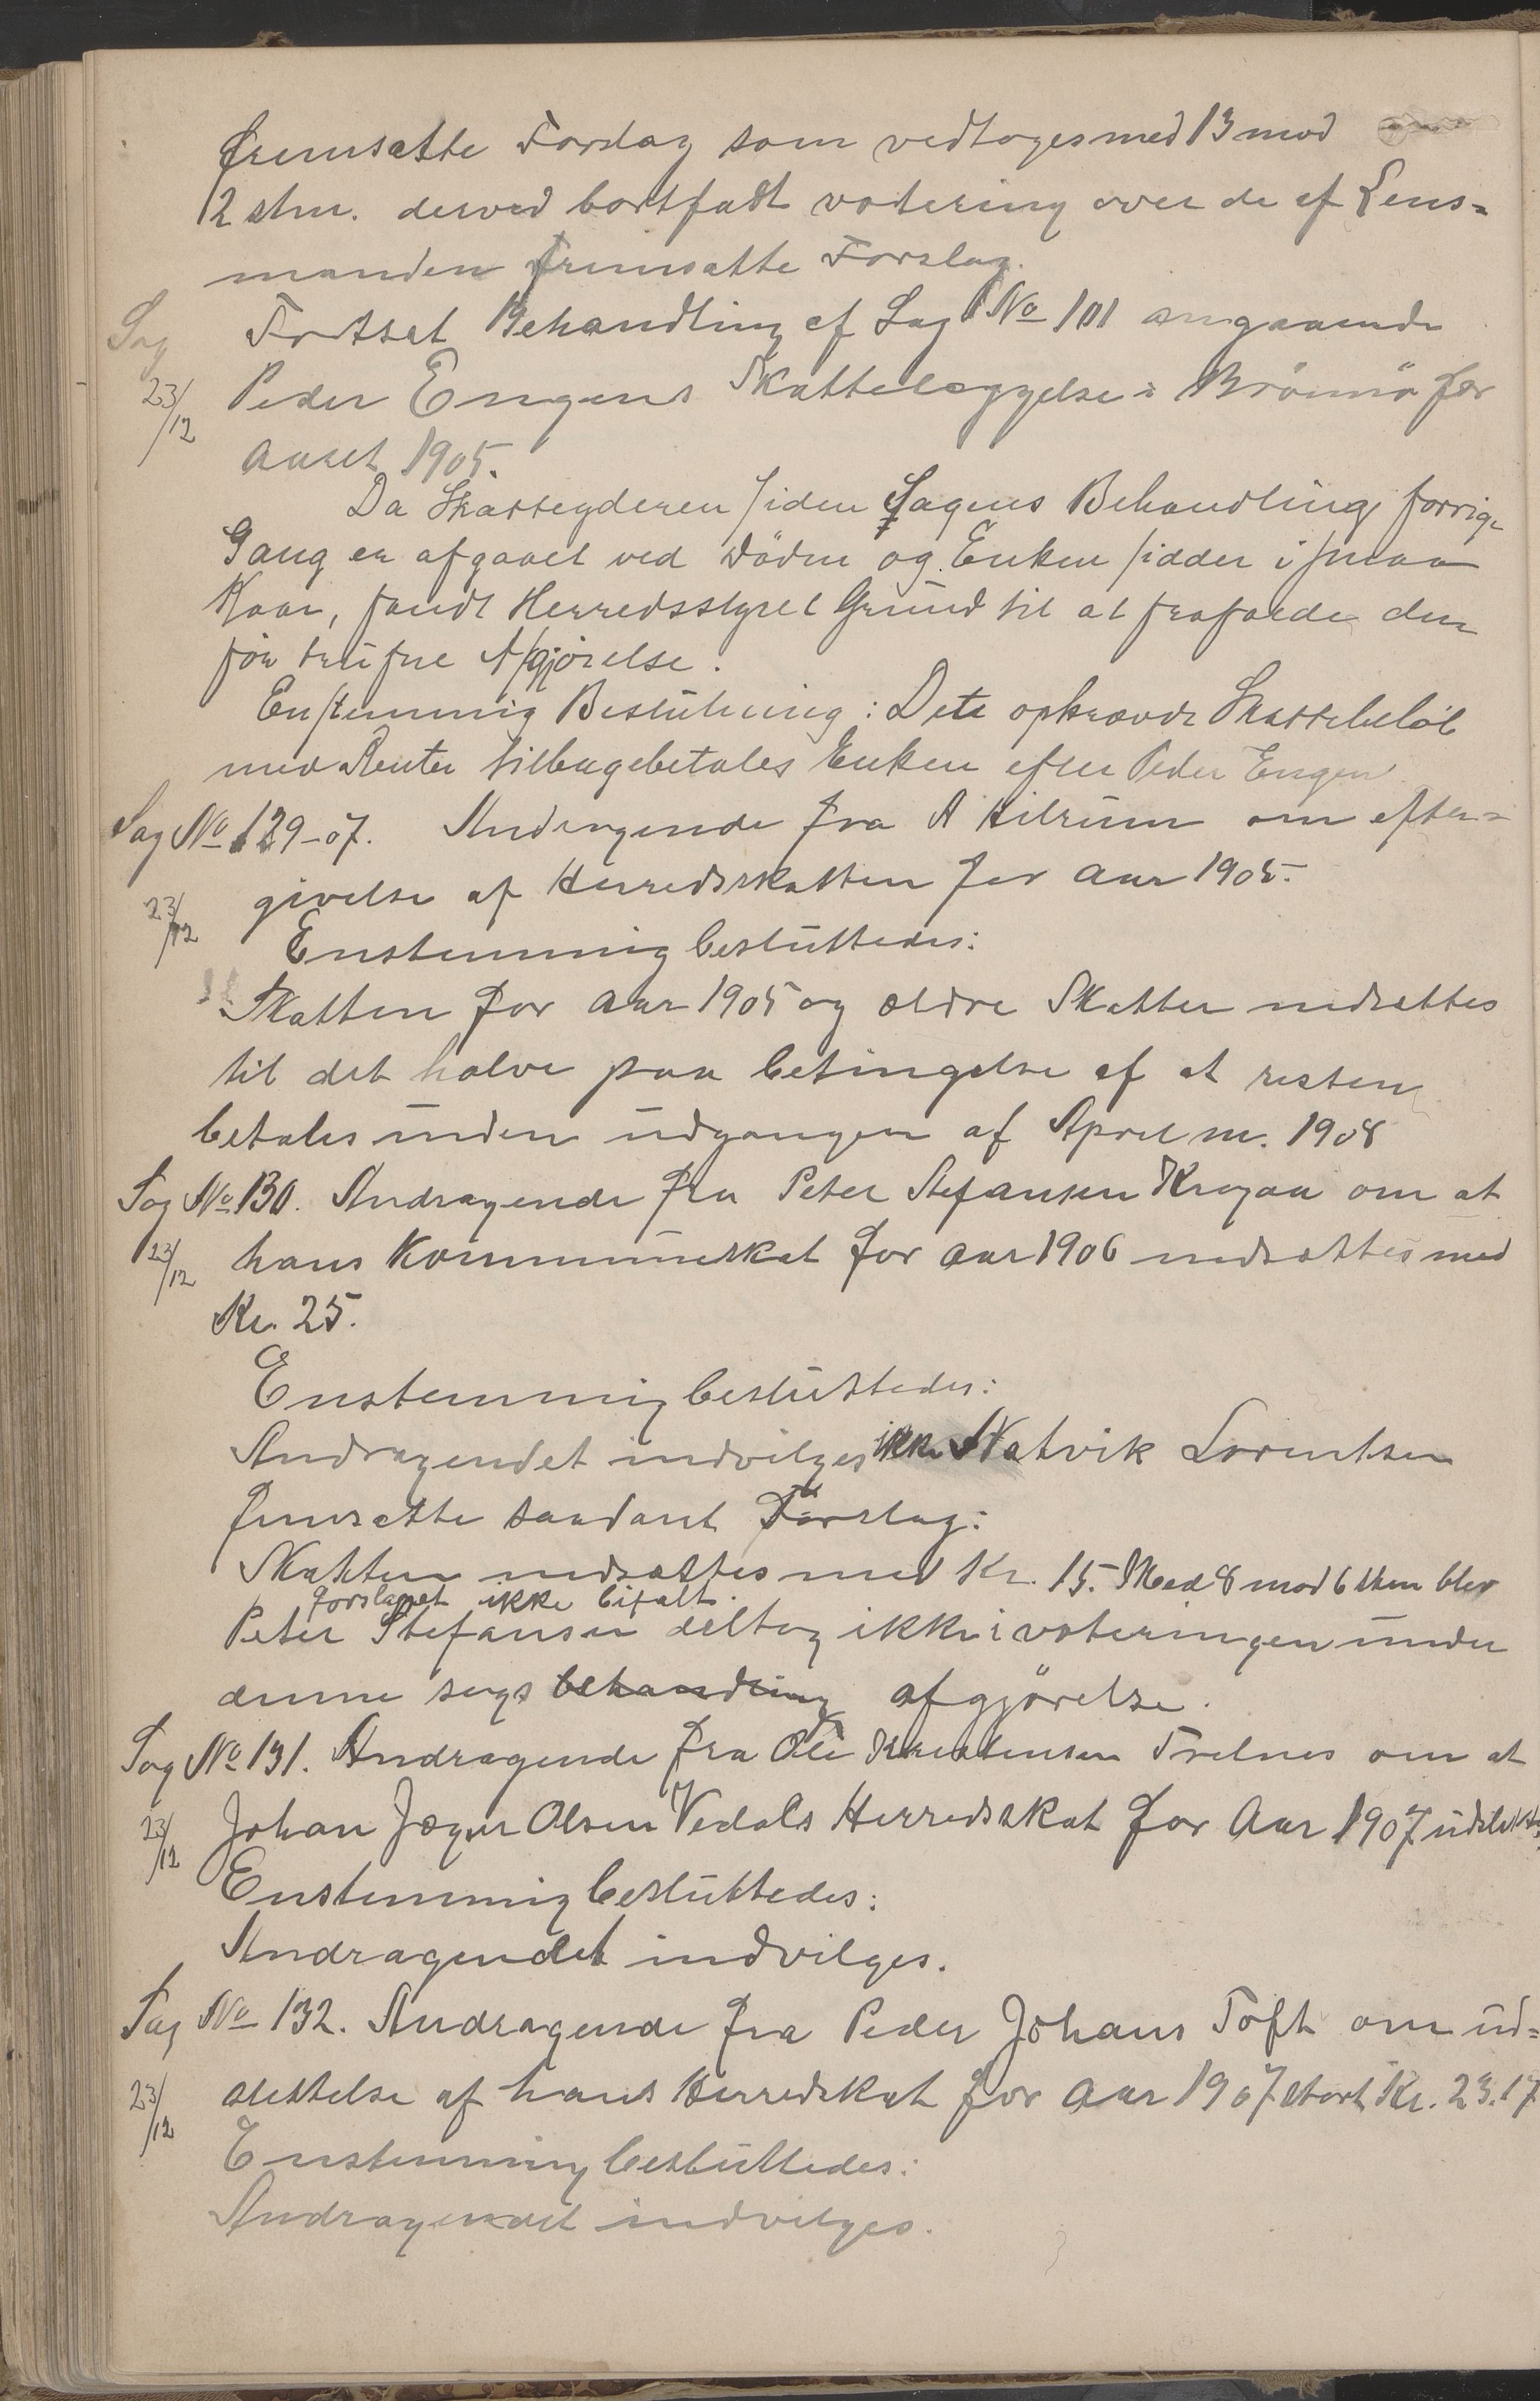 fremsatte Forslag som vedtoges med 13 mod
2 stm. derved bortfalt votering over de af Lens=
manden fremsatte Forslag.
Sag Fortsat Behandling af Sag No 101 angaaende
23/12 Peder Engens Skattelæggelse i Brönnö for
Aaret 1905.
Da Skatteyderen siden Sagens Behandling forrige
Gang er afgaaet ved Döden og Enken sidder i smaa
Kaar, fandt Herredsstyret Grund til at frafalde den
før trufne Afgjørelse.
Enstemmig Beslutning: Dete opkrævde Skattebeløb
med Renter tilbagebetales Enken efter Peder Engen
Sag No 129-07. Andragende fra A Hilrum om efter=
23/12 givelse af Herredsskatten for Aar 1905.
Enstemmig besluttedes:
Skatten for Aar 1905 og ældre Skatter nedsættes
til det halve paa betingelse af at resten
betales inden udgangen af April m. 1908
Sag No 130. Andragende fra Peter Stefansen Kragaa om at
23/12 hans Kommuneskat for Aar 1906 nedsættes med
Kr. 25.
Enstemmig besluttedes:
Andragendet indvilges ikke Natvik Lorentsen
fremsatte saadant Forslag:
Skatten nedsættes med Kr. 15. Med 8 mod 6 stm blev
forslaget ikke bifalt.
Peter Stefansen deltog ikke i voteringen under
denne sags behandling afgjörelse.
Sag No 131. Andragende fra Ole Kristensen Trelnes om at
23/12 Johan Jæger Olsen Vedals Herredsskat for Aar 1907 udslettes
Enstemmig besluttedes:
Andragendet indvilges.
Sag No 132. Andragende fra Peder Johans Toft om ud=
23/12 slettelse af hans Herredskat for Aar 1907 stort Kr. 23.17
Enstemmig besluttedes:
Andragendet indvilges.